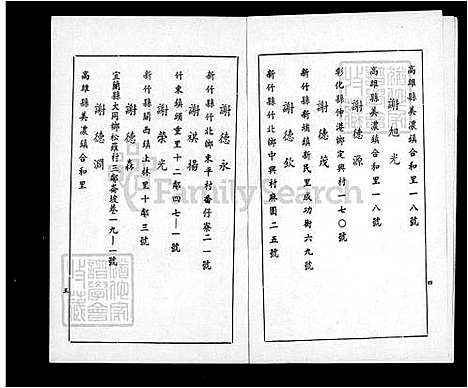 高雄縣美濃鎮合和里一八號
謝旭光
高雄縣美濃鎮合和里一八號
謝德源
彰化縣伸港鄉定興村一七〇號
謝德茂
新竹縣新埔鎮新民里成功街六九號
謝德欽
新竹縣竹北鄉中興村麻園二五號
四
謝德永
新竹縣竹北鄉東平村番仔寮二一號
謝祺揚
竹東鎮頭重里十二鄰四七-一號
謝榮光
新竹縣關西鎮上林里十鄰三號
謝德森
宜蘭縣大同鄉松羅村三鄰崙埤巷一九-一號
謝德潤
高雄縣美濃鎮合和里
五
FamilySearch